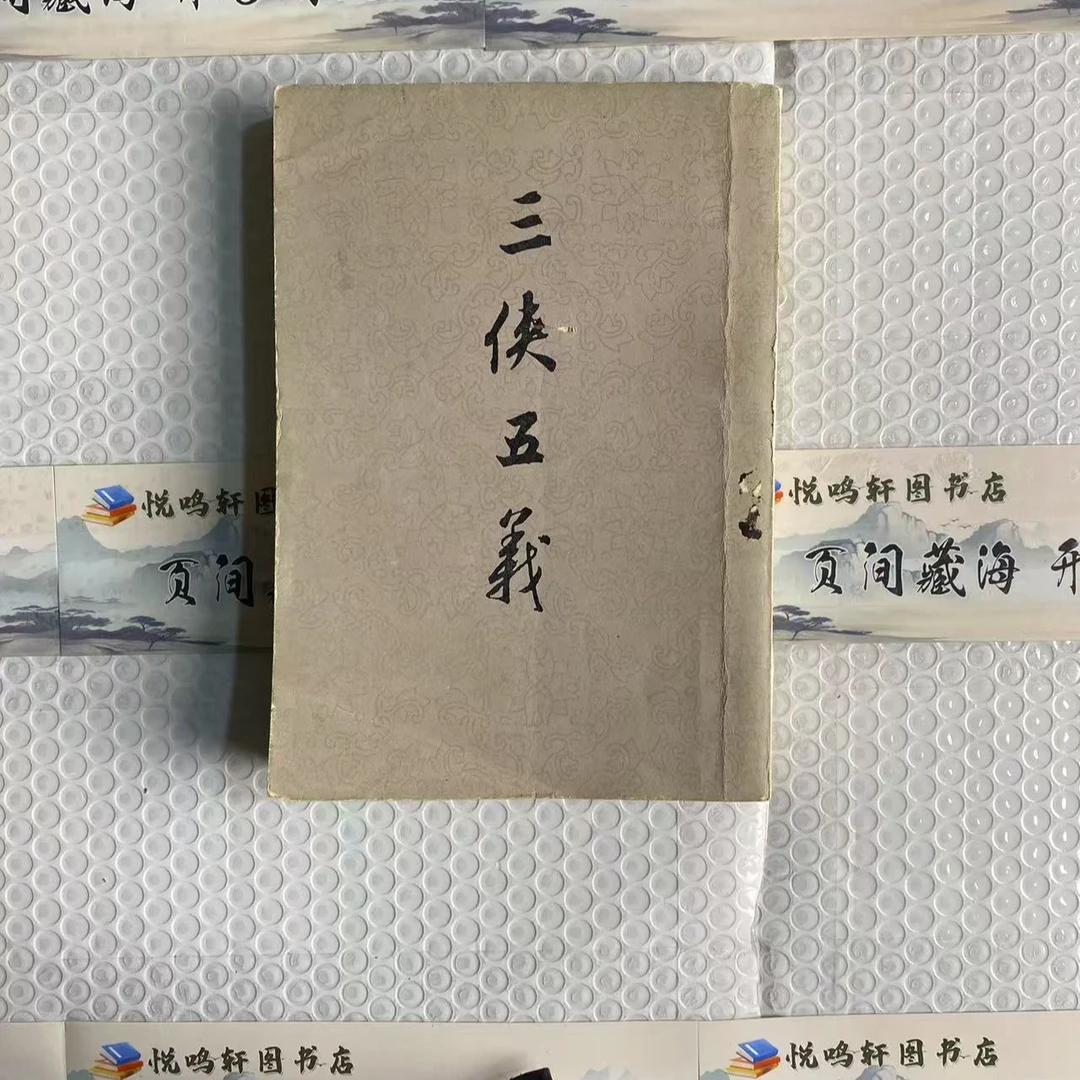 三侠五義
悦鸣轩图
页间
悦鸣轩图书店
页间藏海
悦鸣轩图书店
悦鸣轩图书店